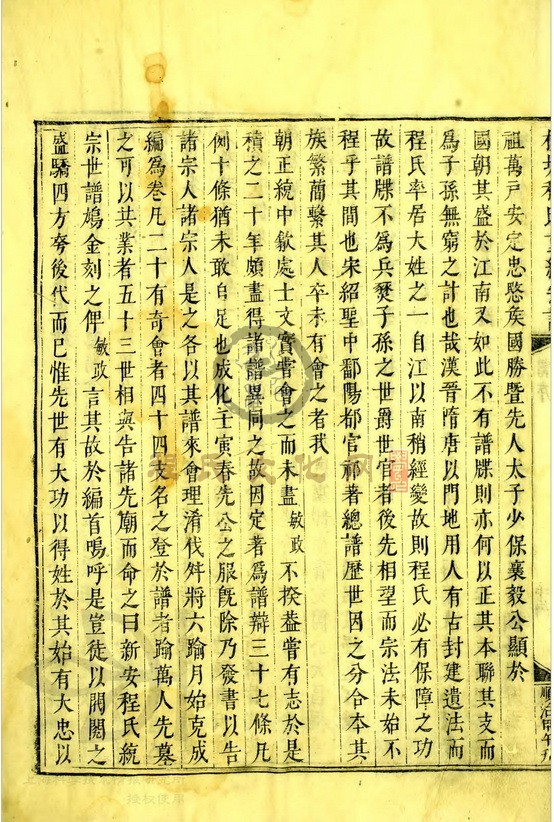 祖萬戸安定忠愍族國勝暨先人太子少保襄毅公顯於
國朝其盛於江南又如此不有譜牒則亦何以正其本聯其支而
爲子孫無窮之計也哉漢晉隋唐以門地用人有古封建遺法而
程氏率居大姓之一自江以南稍經變故則程氏必有保障之功
故譜牒不爲兵燹子孫之世爵世官者後先相望而宗法未始不
程乎其間也宋紹聖中鄱陽都官祁著總譜歷世因之分合本其
族繁蕳繫其人卒未有會之者我
朝正統中歙處士文實嘗會之而未盡敏政不揆葢嘗有志於是
積之二十年頗盡得諸譜異同之故因定著爲譜辯三十七條凡
例十條猶未敢自足也成化壬寅春先公之服旣除乃發書以告
諸宗人諸宗人是之各以其譜來會理淆伐舛將六踰月始克成
編爲卷凡二十有奇會者四十四支名之登於譜者踰萬人先墓
之可以共業者五十三世相與告諸先廟而命之曰新安程氏統
宗世譜鳩金刻之俾敏政言其故於編首嗚呼是豈徒以閥閱之
盛驕四方夸後代而已惟先世有大功以得姓於其始有大忠以
順治甲午
程氏文化網
授权使用